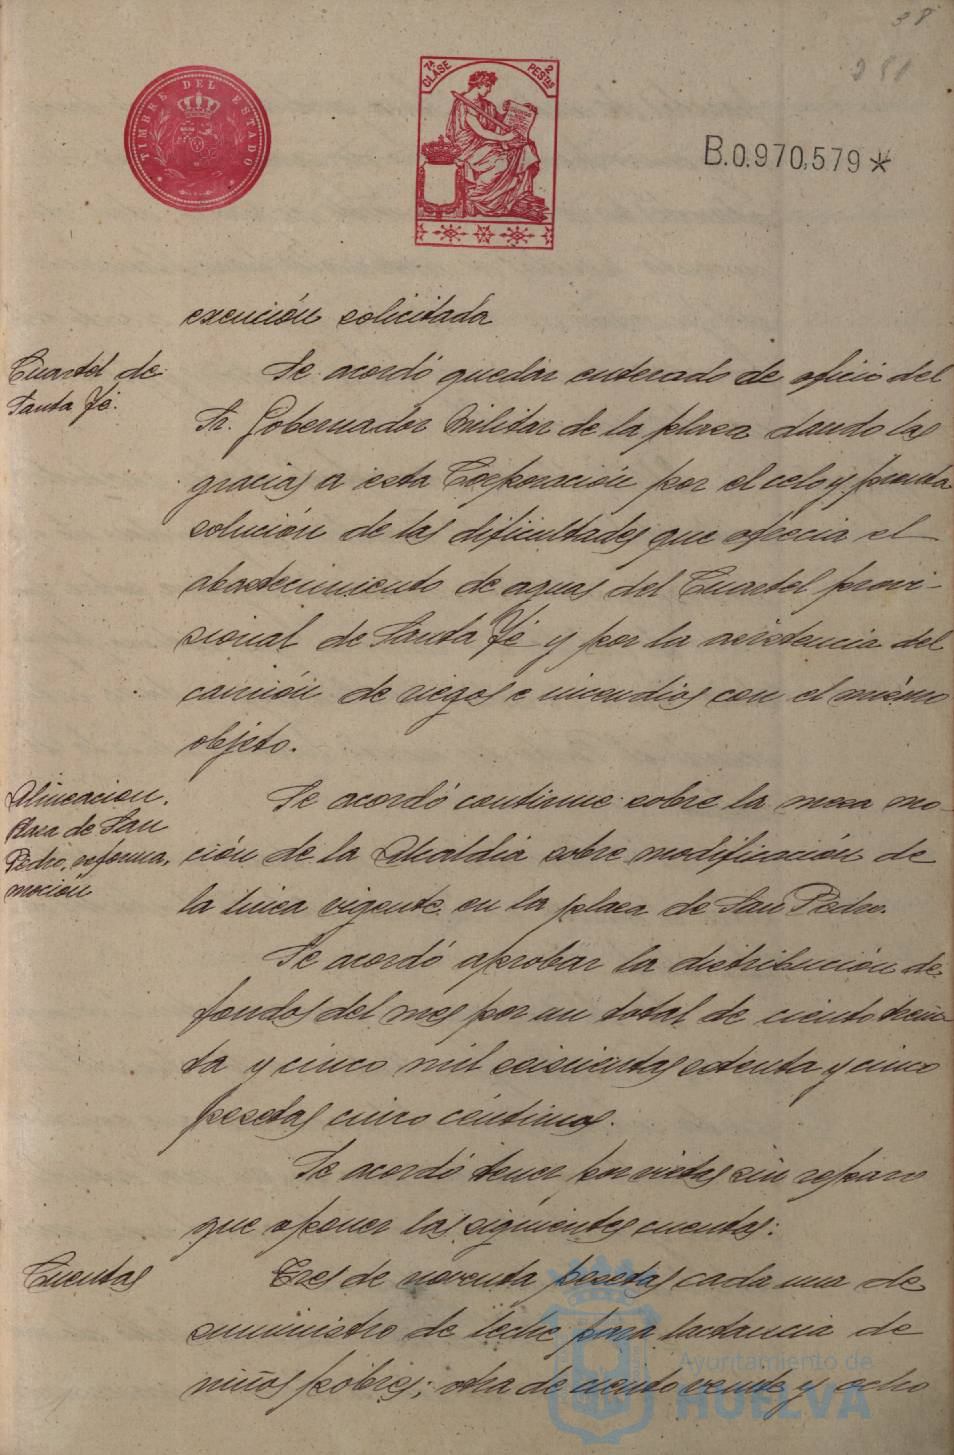 38
281
TIMBRE DEL ESTADO
7ª CLASE
2 PESTAS
B.0.970,579*
exención solicitada
Cuartel de
Santa Fé.
Se acordó quedar enterado de oficio del
Sr. Gobernador Militar de la plaza dando las
gracias a esta Corporación por el celo y pronta
solución de las dificultades que ofrecia el
abastecimiento de aguas del Cuartel provi-
sional de Santa Fé y por la asistencia del
camión de riegos e incendios con el mismo
objeto.
Alineacion.
Plaza de San
Pedro, reforma,
moción
Se acordó continue sobre la mesa mo-
ción de la Alcaldia sobre modificación de
la linea vigente en la plaza de San Pedro.
Se acordó aprobar la distribución de
fondos del mes por un total de ciento trein-
ta y cinco mil seiscientas setenta y cinco
pesetas cinco céntimos.
Se acordó tener por vistas sin reparo
que oponer las siguientes cuentas:
Cuentas
Tres de noventa pesetas cada una de
suministro de leche para lactancia de
niños pobres; otra de ciento veinte y ocho
Ayuntamiento de
HUELVA